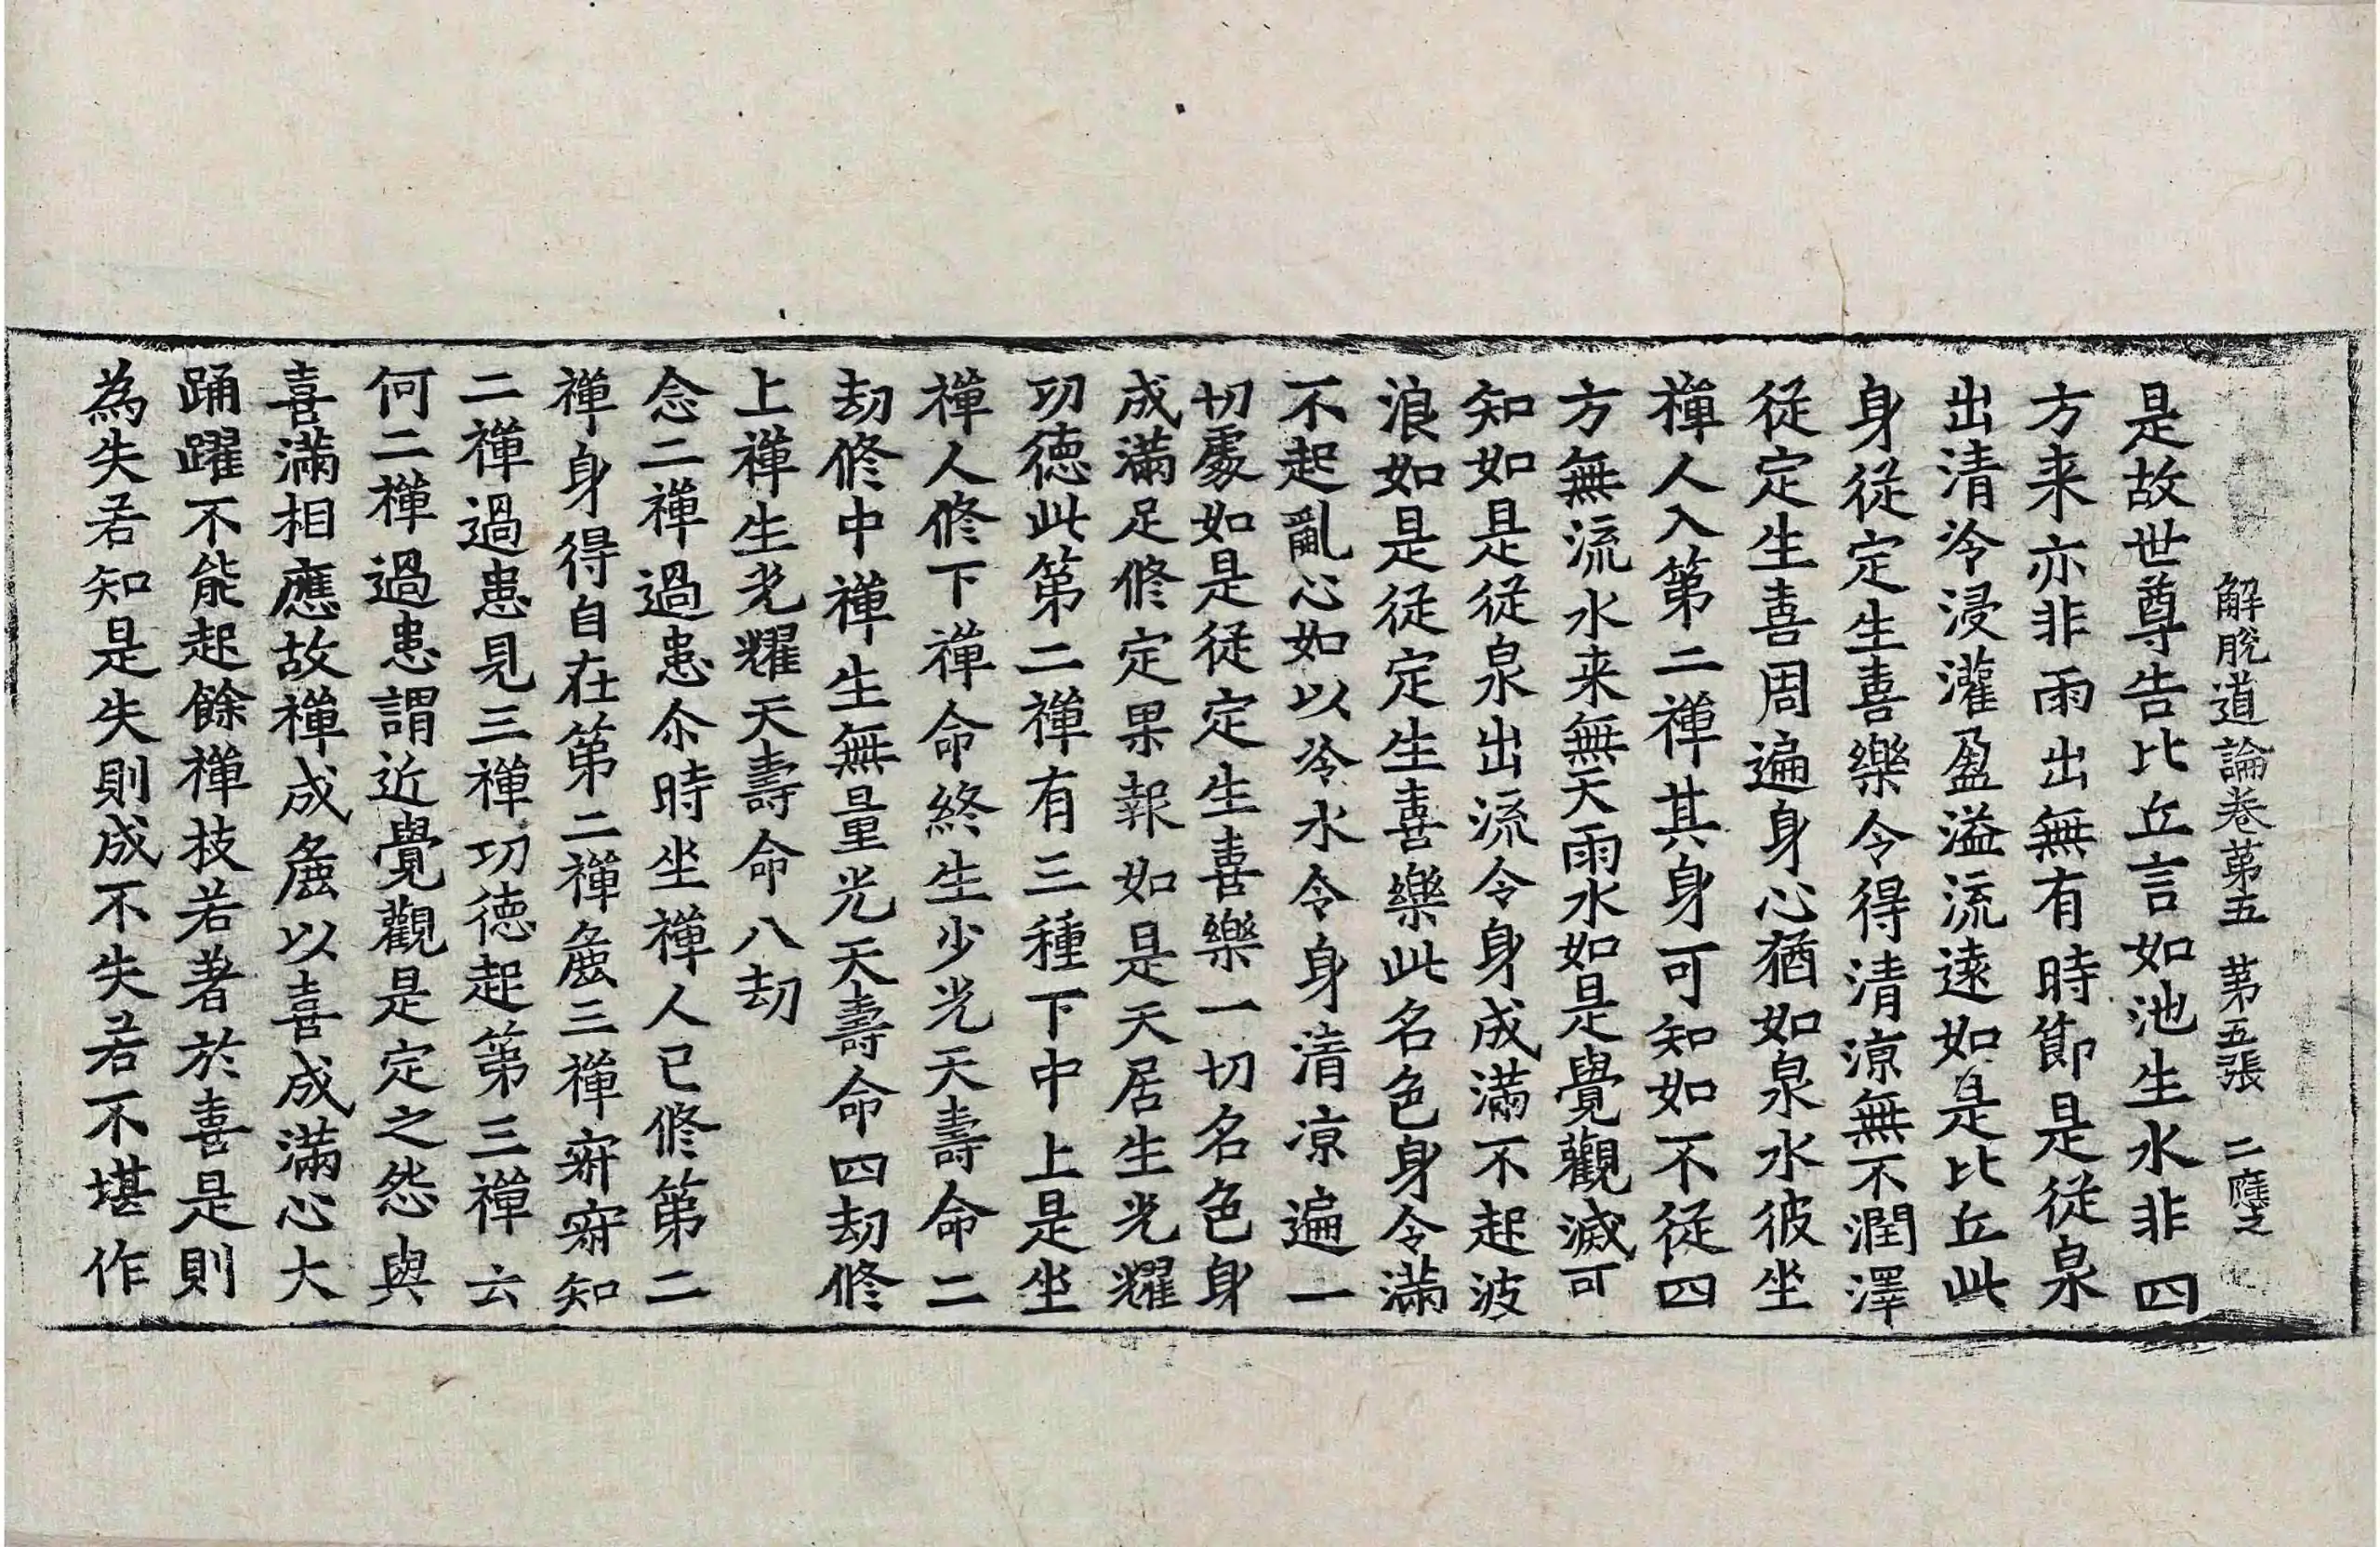 解脫道論卷第五 第五張
是故世尊告比丘言如池生水非四
方来亦非雨出無有時節是從泉
出清冷浸灌盈溢流遠如是比丘此
身從定生喜樂令得清涼無不潤澤
從定生喜周遍身心猶如泉水彼坐
禪人入第二禪其身可知如不從四
方無流水来無天雨水如是覺觀滅可
知如是從泉出流令身成滿不起波
浪如是從定生喜樂此名色身令滿
不起亂心如以冷水令身清凉遍一
切處如是從定生喜樂一切名色身
成滿足修定果報如是天居生光耀
功徳此第二禪有三種下中上是坐
禪人修下禪命終生少光天壽命二
劫修中禪生無量光天壽命四劫修
上禪生光耀天壽命八劫
念二禪過患尒時坐禪人已修第二
禪身得自在第二禪麁三禪寂寂知
二禪過患見三禪功徳起第三禪云
何二禪過患謂近覺觀是定之怨與
喜滿相應故禪成麁以喜成滿心大
踊躍不能起餘禪枝若著於喜是則
為失若知是失則成不失若不堪作